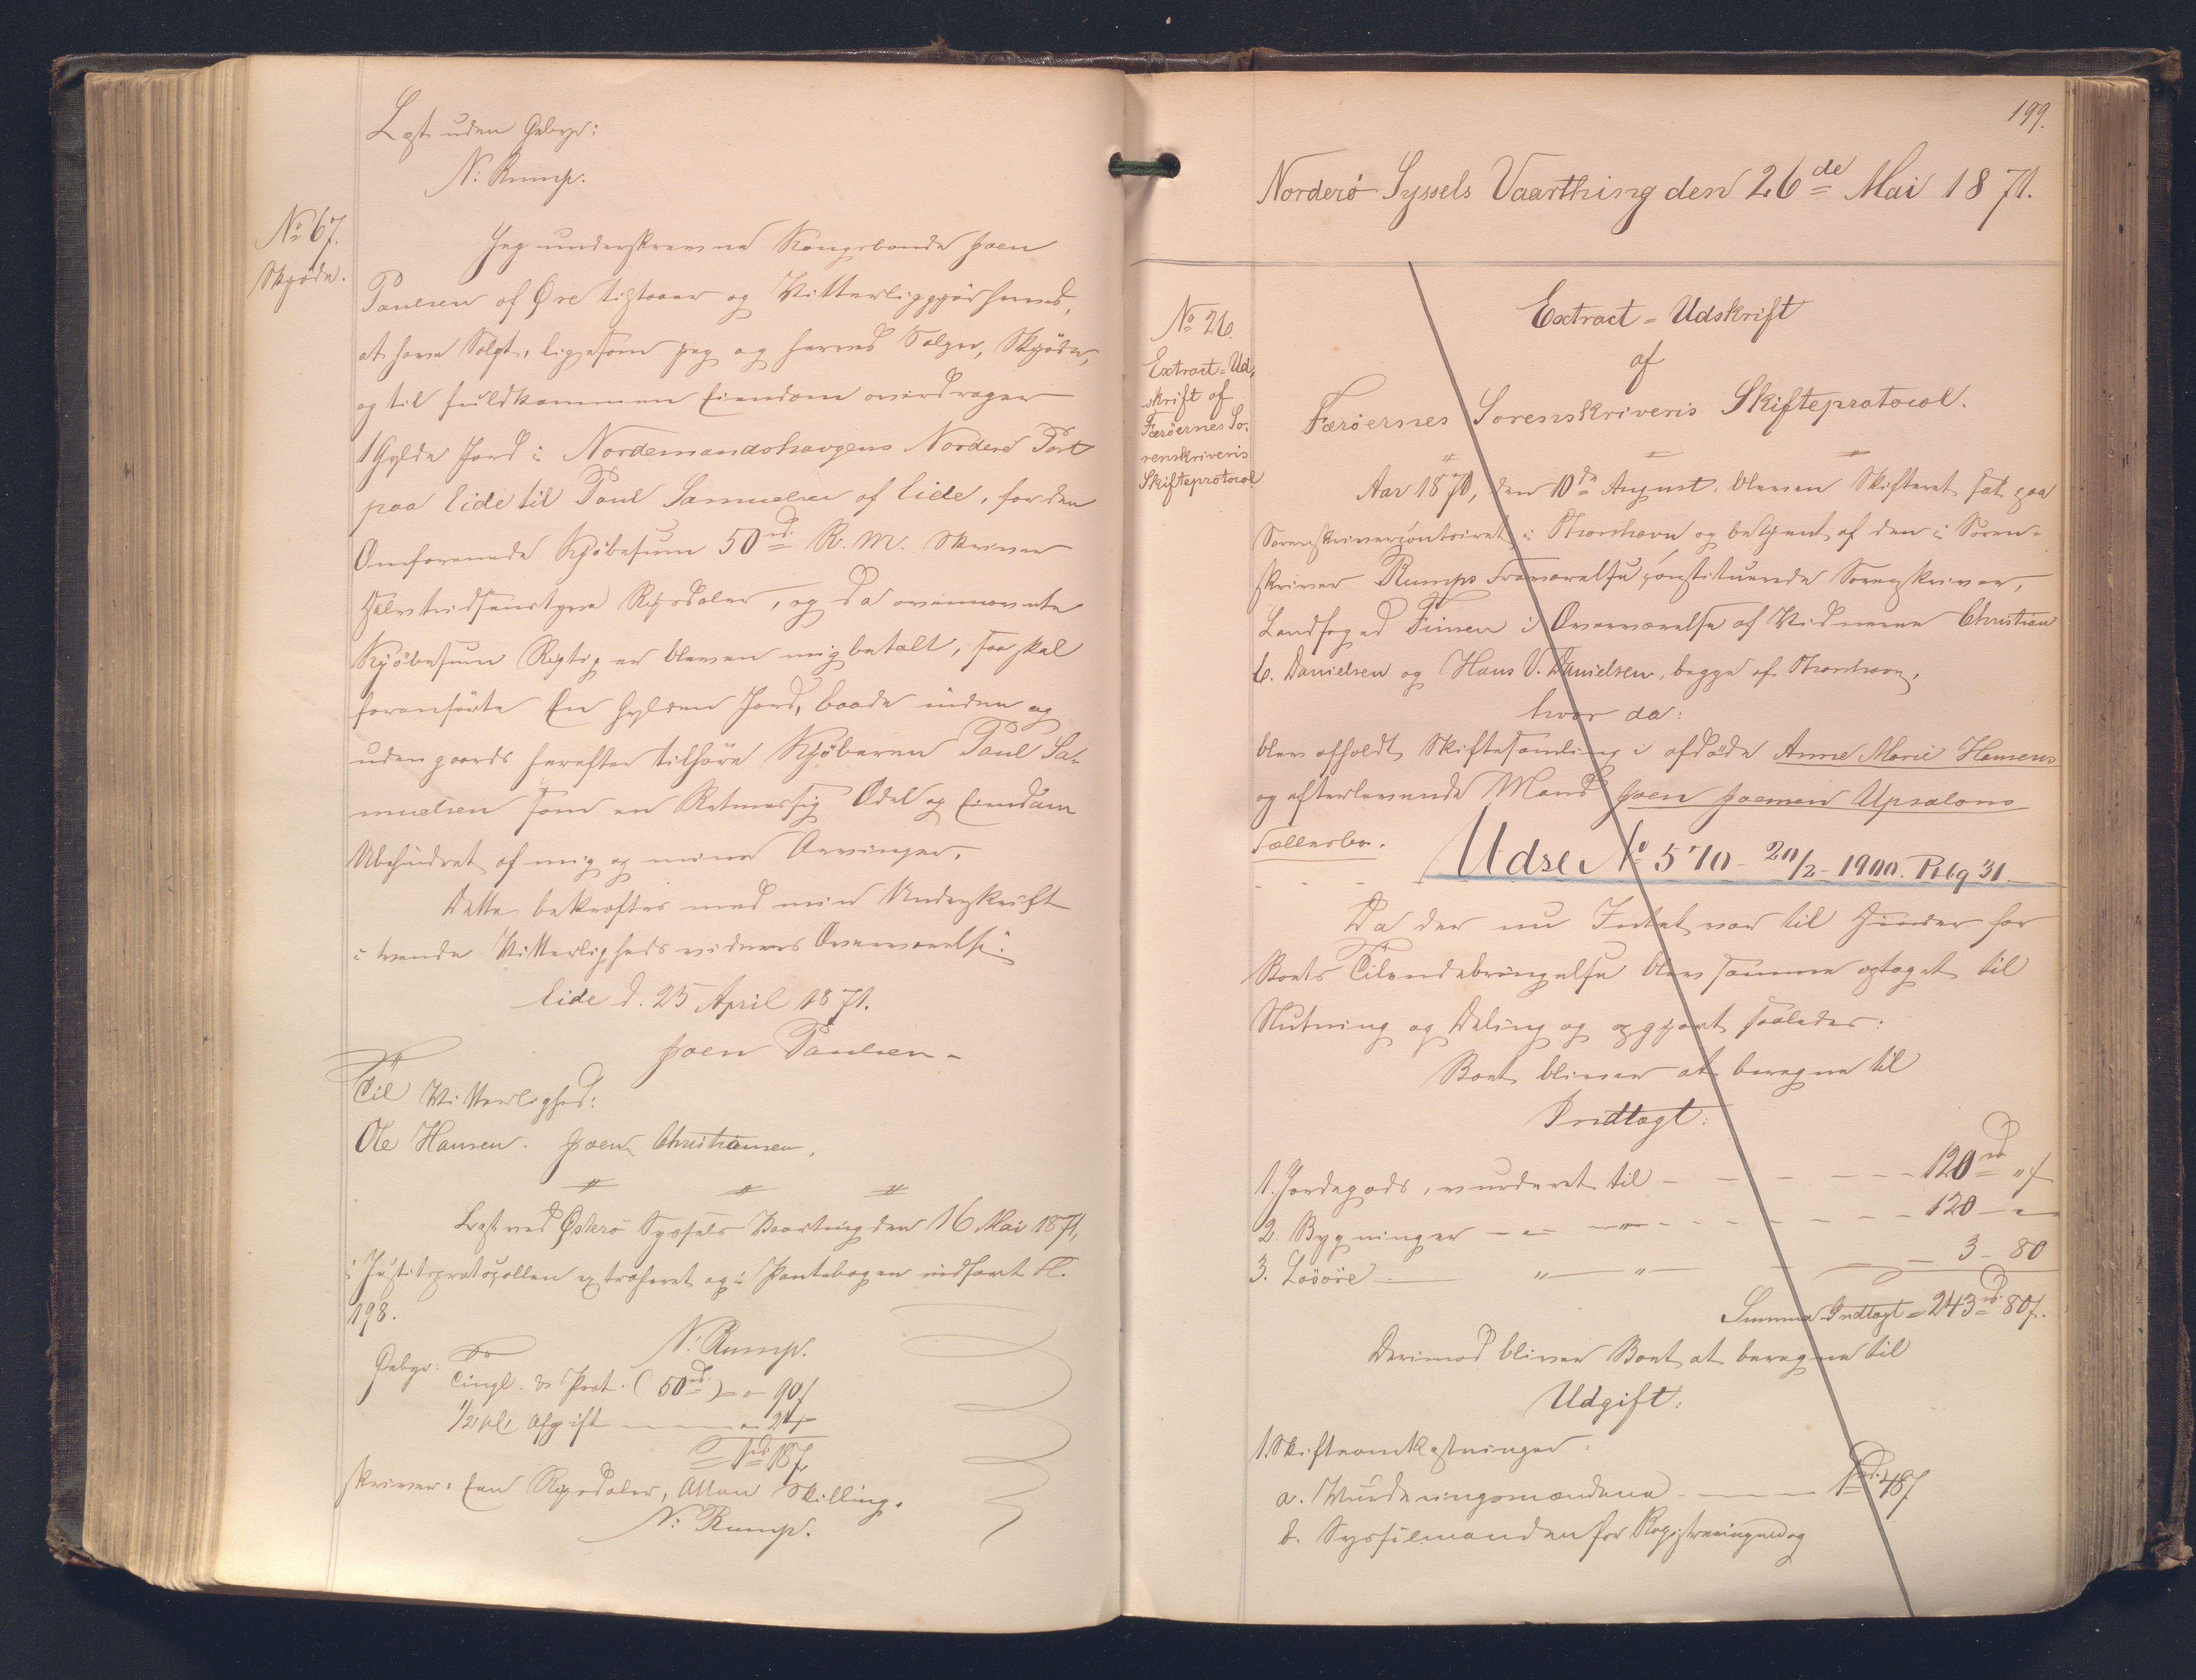 Læst uden Gebyr:
N: Rump.
No 67.
Skjøde.
Jeg underskrevne Kongsbonde Joen
Poulsen af Øre tilstaaer og Vitterliggjør herved,
at have Solgt, ligesom jeg og herved Sælger, Skjøder,
og til fuldkommen Eiendom overdrager
1 Gylde Jord i Nordemandshaugens Norderø Part
paa Eide til Poul Samuelsen af Eide, for den
Omforenede Kjøbesum 50 rd. R. M. skriver
Halvtredsenstyve Rigsdaler, og da ovennævnte
Kjøbesum Rigtig er bleven mig betalt, saa skal
foranførte En Gylden Jord, baade inden og
uden gaards herefter tilhøre Kjøberen Poul Sa-
muelsen som en Retmæssig Odel og Eiendom
Ubehindret af mig og mine Arvinger.
Dette bekræftes med min Underskrift
i tvende Vitterligheds vidners Overværelse.
Eide d. 25 April 1871.
Joen Poulsen -
Til Vitterlighed:
Ole Hansen. Joen Christiansen.
Læst ved Østerø Syssels Vaarting den 16 Mai 1871,
i Justitsprotocollen extraheret og i Pantebogen indført fl.
198.
N: Rump.
Gebyr: Tingl. & Prot. (50 rd.) = " - 90 ß
1/2 pCt Afgift - " - 24 -
= 1 rd. 18 ß
skriver: Een Rigsdaler, Atten Skilling.
N: Rump.
199.
Norderø Syssels Vaarthing den 26de Mai 1871.
No 26.
Extract-Ud-
skrift af
Færøernes So-
renskriveris
Skifteprotocol
Extract-Udskrift
af
Færøernes Sorenskriveris Skifteprotocol.
Aar 1870, den 10de August, bleven Skifteret sat paa
Sorenskrivercontoiret i Thorshavn og betjent af den i Soren-
skriver Rumps Fraværelse constituerede Sorenskriver,
Landfoged Finsen i Overværelse af Vidnerne Christian
C. Danielsen og Hans V. Danielsen, begge af Thorshavn,
hvor da:
blev afholdt Skiftesamling i afdøde Anne Marie Hansens
og efterlevende Mand Joen Joensen Upsalons
Fællesbo.
Udsl. No 570 - 20/2 - 1900. Ptbg 31
Da der nu Intet var til Hinder for
Boets Tilendebringelse blev samme optaget til
Slutning og Deling og opgjort saaledes:
Boet bliver at beregne til
Indtægt:
1. Jordegods, vurderet til - 120 rd. " ß
2. Bygninger - " - " - 120 - "
3. Løsøre - " - " - 3 - 80
Summa Indtægt = 243 rd. 80 ß.
Derimod bliver Boet at beregne til
Udgift:
1. Skifteomkostninger.
a. Vurderingsmændene - 1 rd. 48 ß
b. Sysselmanden for Registreringen og